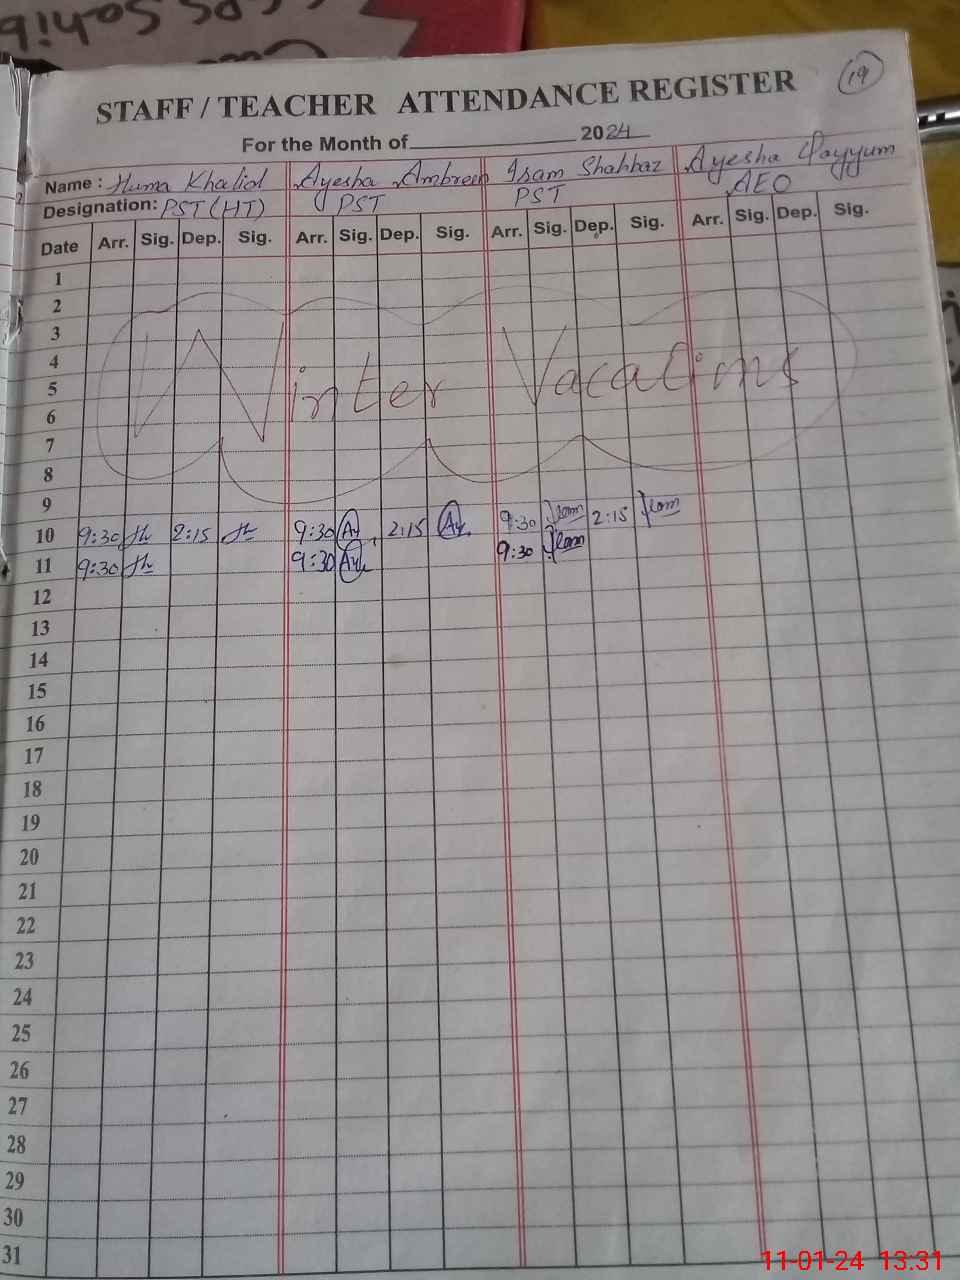 19
STAFF / TEACHER ATTENDANCE REGISTER
For the Month of 2024
Name : Huma Khalid Ayesha Ambreen Iram Shahbaz Ayesha Qayyum
Designation: PST (HT) PST PST AEO
Date Arr. Sig. Dep. Sig. Arr. Sig. Dep. Sig. Arr. Sig. Dep. Sig. Arr. Sig. Dep. Sig.
1
2
3
4
5
Winter Vacations
6
7
8
9
10 9:30 2:15 9:30 2:15 9:30 2:15
11 9:30 9:30 9:30
12
13
14
15
16
17
18
19
20
21
22
23
24
25
26
27
28
29
30
31
11-01-24 13.31